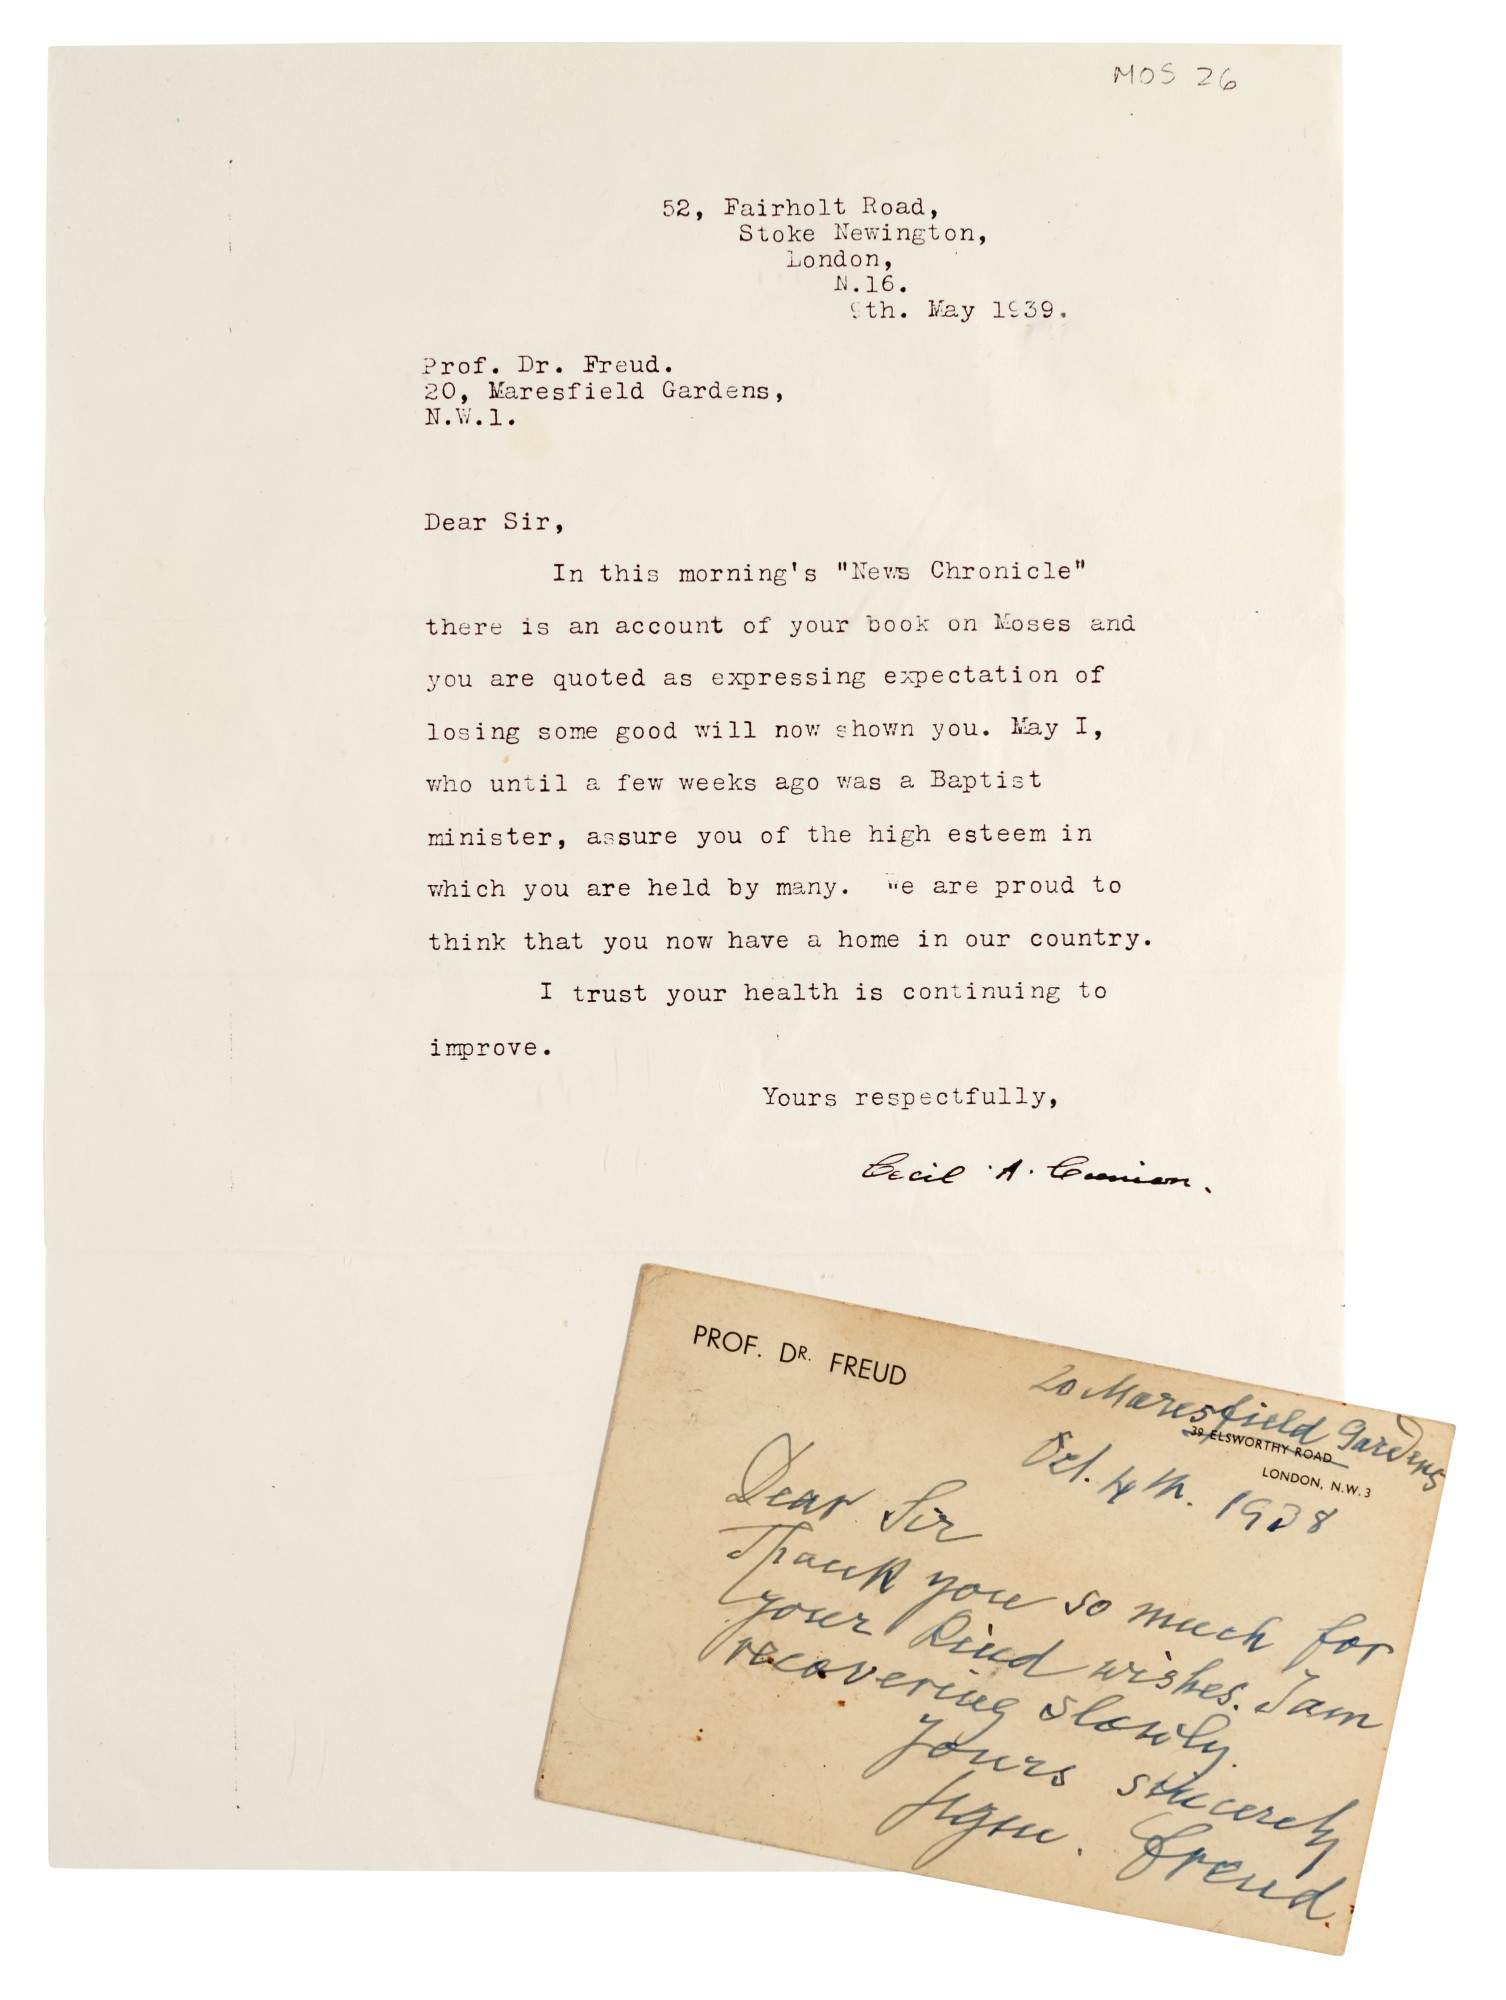 MOS 26
52, Fairholt Road,
Stoke Newington,
London,
N.16.
9th. May 1939.
Prof. Dr. Freud.
20, Maresfield Gardens,
N.W.1.
Dear Sir,
In this morning's "News Chronicle"
there is an account of your book on Moses and
you are quoted as expressing expectation of
losing some good will now shown you. May I,
who until a few weeks ago was a Baptist
minister, assure you of the high esteem in
which you are held by many. We are proud to
think that you now have a home in our country.
I trust your health is continuing to
improve.
Yours respectfully,
Cecil A.
PROF. DR. FREUD
20 Maresfield Gardens
39 ELSWORTHY ROAD
LONDON, N.W.3
Oct. 4th. 1938
Dear Sir
Thank you so much for
your kind wishes. I am
recovering slowly.
Yours sincerely
Sigm. Freud.